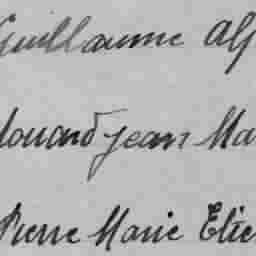 Guillaume Alf
douard Jean Ma
Pierre Marie Etie